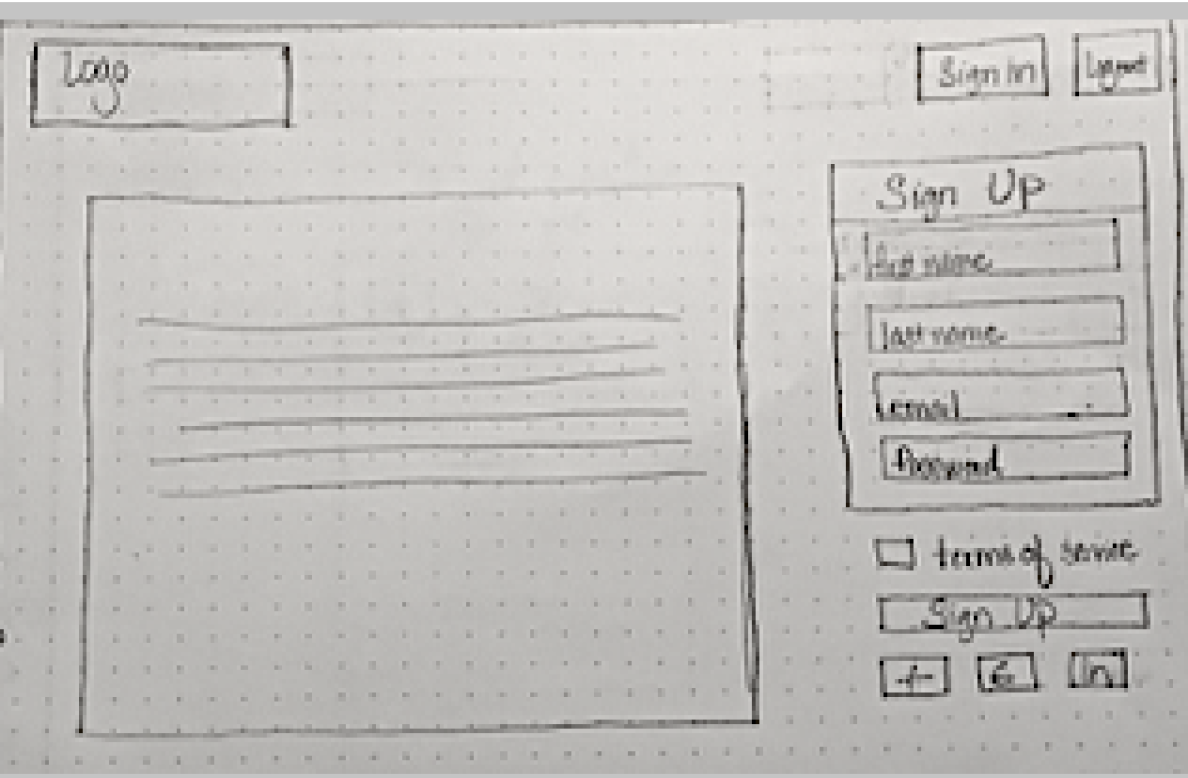 Logo
Sign in
Logout
Sign Up
first name
last name
email
Password
terms of service
Sign Up
G
in